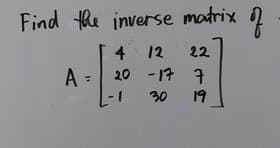 Find the inverse matrix of
4 12 22
A = 20 -17 7
-1 30 19